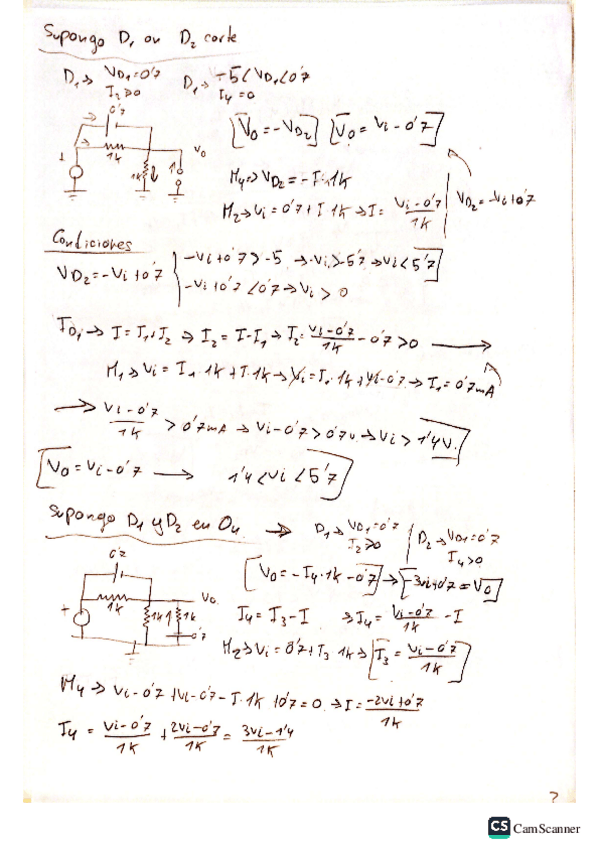 Supongo D₁ on D₂ corte
D₁→ V_D1=0'7 D₁→ -5<V_D1<0'7
I₂≥0 I₄=0
0'7
1k
V₀
1k
[V₀=-V_D2] [V₀=Vi-0'7]
M₄→V_D2=-I·1k
M₂→Vi=0'7+I·1k→I=(Vi-0'7)/1k | V_D2=-Vi+0'7
Condiciones
V_D2=-Vi+0'7 { -Vi+0'7>-5 → -Vi>-5'7→Vi<5'7
-Vi+0'7<0'7→Vi>0
I=I₁+I₂ → I₂=I-I₁→I₂=(Vi-0'7)/1k-0'7>0 →
M₁→Vi=I₁·1k+I·1k→Vi=I₁·1k+Vi-0'7→I₁=0'7mA
→ (Vi-0'7)/1k > 0'7mA → Vi-0'7>0'7v→Vi>1'4V.
[V₀=Vi-0'7 → 1'4<Vi<5'7]
Supongo D₁ y D₂ en On → D₁→V_D1=0'7 | D₂→V_D1=0'7
I₂≥0 I₄>0
0'7
1k
V₀
1k
1k
0'7
[V₀=-I₄·1k-0'7]→[-3Vi+0'7=V₀]
I₄=I₃-I →I₄=(Vi-0'7)/1k-I
M₂→Vi=0'7+I₃·1k→[I₃=(Vi-0'7)/1k]
M₄→Vi-0'7+Vi-0'7-I·1k+0'7=0→I=(-2Vi+0'7)/1k
I₄=(Vi-0'7)/1k+(2Vi-0'7)/1k=(3Vi-1'4)/1k
CS CamScanner